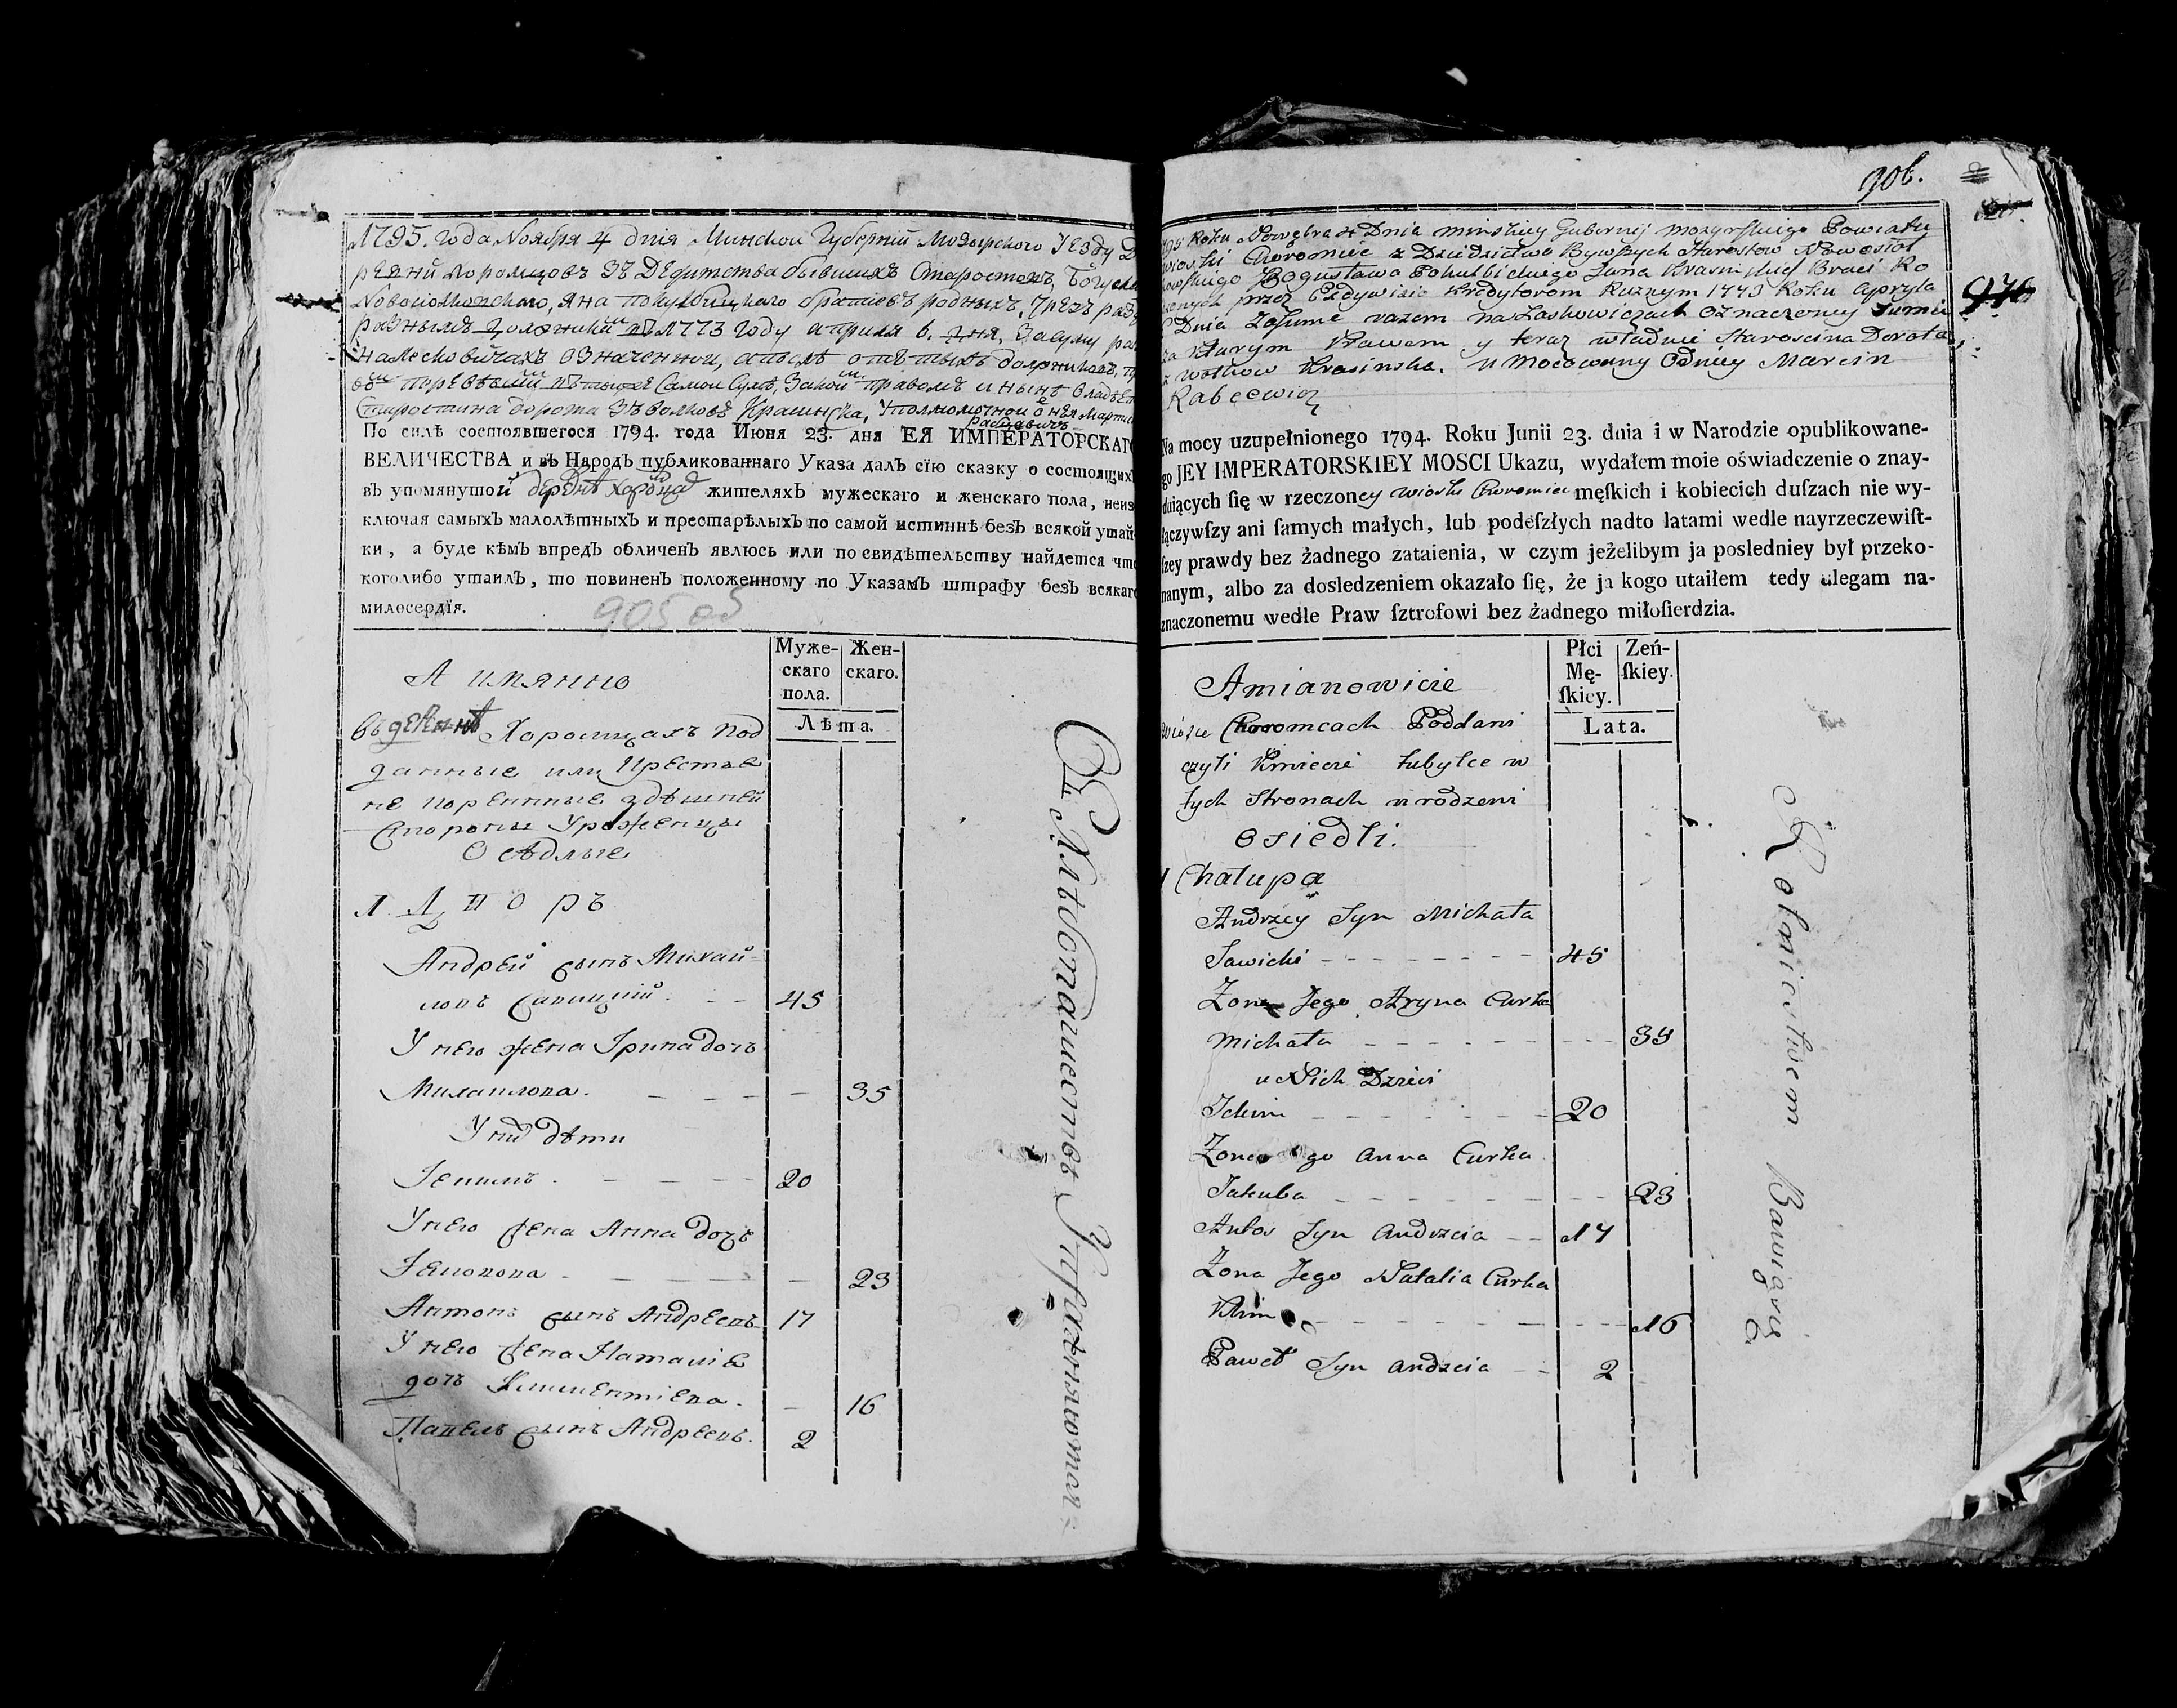 1795. года Ноября 4 дня Минской Губернии Мозырского Уезду Д
ревни Хоромцовъ зъ Дедитства бывшихъ Старостовъ, Богусла
Новосiолковского, Яна Покулбицкаго братiевъ родныхъ, чрезъ разд
разнымъ должникамъ 1773 году априля 6. дня, за суму
на Лесковичахъ означенной, апослѣ отъ тыхъ должниковъ,
самой Сумѣ, Закой правомъ и нынѣ владѣет
Старостина Дорота зъ Волковъ Красинска, Уполномочной о нея Марти
Рабцевичъ
По силѣ состоявшегося 1794. года Июня 23. дня ЕЯ ИМПЕРАТОРСКАГО
ВЕЛИЧЕСТВА и въ Народъ публикованнаго Указа далъ сїю сказку о состоящихъ
въ упомянутой деревнѣ Хоромцахъ жителяхъ мужескаго и женскаго пола, неиз
ключая самыхъ малолѣтныхъ и престарѣлыхъ по самой истиннѣ безъ всякой утай
ки, а буде кѣмъ впредъ обличенъ явлюсь или по свидѣтельству найдется что
коголибо утаилъ, то повиненъ положенному по Указамъ штрафу безъ всякаго
милосердїя.
905 об
Муже-
скаго
пола.
Жен-
скаго.
Лѣта.
А имянно
въ деревнѣ Хоромцахъ под
данные или Крестья
не коренные здѣшней
Стороны Уроженцы
Осѣдлые
1. Дворъ
Андрей сынъ Михай-
ловъ Савицкiй. 45
У него жена Ирина дочь
Михаилова. 35
У нихъ дѣти
Iекимъ. 20
У него жена Анна дочь
Iаковова 23
Антонъ сынъ Андреевъ 17
У него жена Наталiя
дочь Климентiева. 16
Павелъ сынъ Андреевъ. 2
906.
976
1795 Roku Nowębra 4 Dnia minskiey Gubernij mozyrskiego Powiatu
wioski Choromiec z Dziedzictwa Bywszych Starostow Nowosioł
kowskiego Bogusława Pokulbickiego Jana Krasinskich Braci Ro
dzonych przez Exdywizio Kredytorom Ruznym 1773 Roku Apryla
6 Dnia Zasume razem na Laskowiczach Oznaczoney Sumie
za Kturym Prawem y teraz władnie Starościna Dorota
z Wołkow Krasinska. Umocowany Odniey Marcin
Rabcewicz
Na mocy uzupełnionego 1794. Roku Junii 23. dnia i w Narodzie opublikowane-
go JEY IMPERATORSKIEY MOSCI Ukazu, wydałem moie oświadczenie o znay-
duiących ſię w rzeczoney wiosce Choromcu męſkich i kobiecich duſzach nie wy-
łączywſzy ani ſamych małych, lub podeſzłych nadto latami wedle nayrzeczewiſt-
ſzey prawdy bez żadnego zataienia, w czym jeżelibym ja posledniey był przeko-
nanym, albo za dosledzeniem okazało ſię, że ja kogo utaiłem tedy ulegam na-
znaczonemu wedle Praw ſztrofowi bez żadnego miłoſierdzia.
Płci
Mę-
ſkiey.
Zeń-
ſkiey.
Lata.
Amianowicie
wiosce Choromcach Poddani
czyli Kmiecie tubylce w
tych Stronach urodzeni
osiedli.
1 Chałupa
Andrzey Syn Michała
Sawicki 45
Zona Jego Aryna Curka
Michała 35
u Nich Dzieci
Jekim 20
Zona Jego Anna Curka
Jakuba 23
Antos Syn Andrzeia 17
Zona Jego Natalia Curka
Klima 16
Paweł Syn Andrzeia 2
Хлѣбопашествомъ Упражняются
Rolnictwem Bawią się